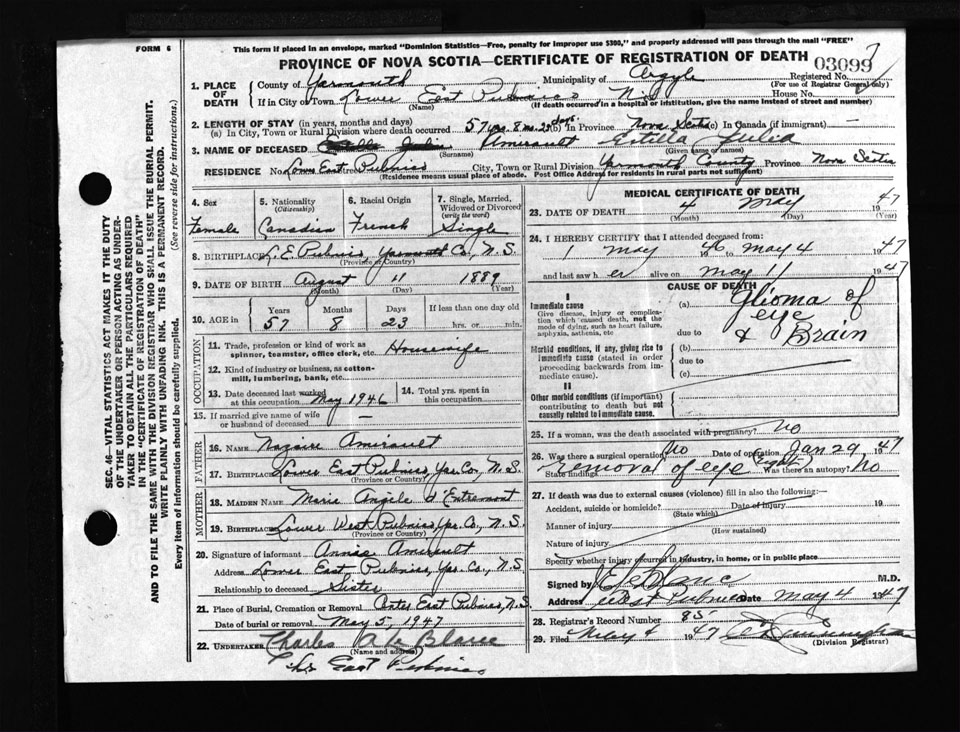 FORM 6
This form if placed in an envelope, marked "Dominion Statistics—Free, penalty for improper use $300," and properly addressed will pass through the mail "FREE"
PROVINCE OF NOVA SCOTIA—CERTIFICATE OF REGISTRATION OF DEATH
03099
SEC. 46—VITAL STATISTICS ACT MAKES IT THE DUTY
OF THE UNDERTAKER OR PERSON ACTING AS UNDER-
TAKER TO OBTAIN ALL THE PARTICULARS REQUIRED
IN THE "CERTIFICATE OF REGISTRATION OF DEATH"
AND TO FILE THE SAME WITH THE DIVISION REGISTRAR WHO SHALL ISSUE THE BURIAL PERMIT.
WRITE PLAINLY WITH UNFADING INK. THIS IS A PERMANENT RECORD.
Every item of information should be carefully supplied. (See reverse side for instructions.)
1. PLACE OF DEATH County of Yarmouth Municipality of Argyle Registered No.
(For use of Registrar General only)
If in City or Town Lower East Pubnico N.S. House No.
(Name) (If death occurred in a hospital or institution, give the name instead of street and number)
2. LENGTH OF STAY (in years, months and days)
(a) In City, Town or Rural Division where death occurred 57 yrs. 8 mo. 23 days. (b) In Province Nova Scotia (c) In Canada (if immigrant) —
3. NAME OF DECEASED Amirault Estella Julia
(Surname) (Given name or names)
RESIDENCE No. Lower East Street Pubnico City, Town or Rural Division Yarmouth County Province Nova Scotia
(Residence means usual place of abode. Post Office Address for residents in rural parts not sufficient)
4. Sex Female
5. Nationality (Citizenship) Canadian
6. Racial Origin French
7. Single, Married, Widowed or Divorced (write the word) Single
8. BIRTHPLACE L. E. Pubnico, Yarmouth Co., N.S.
(Province or Country)
9. DATE OF BIRTH August 11 1889
(Month) (Day) (Year)
10. AGE in Years Months Days If less than one day
57 8 23 hrs. or min.
OCCUPATION
11. Trade, profession or kind of work as spinner, teamster, office clerk, etc. Housewife
12. Kind of industry or business, as cotton-mill, lumbering, bank, etc.
13. Date deceased last worked at this occupation May 1946
14. Total yrs. spent in this occupation
15. If married give name of wife or husband of deceased —
FATHER
16. NAME Nazaire Amirault
17. BIRTHPLACE Lower East Pubnico, Yar. Co., N.S.
(Province or Country)
MOTHER
18. MAIDEN NAME Marie Angele d'Entremont
19. BIRTHPLACE Lower West Pubnico, Yar. Co., N.S.
(Province or Country)
20. Signature of informant Annie Amirault
Address Lower East Pubnico, Yar. Co., N.S.
Relationship to deceased Sister
21. Place of Burial, Cremation or Removal East Pubnico, N.S.
Date of burial or removal May 5, 1947
22. UNDERTAKER Charles A Le Blanc
(Name and address)
East Pubnico
MEDICAL CERTIFICATE OF DEATH
23. DATE OF DEATH 4 May 1947
(Month) (Day) (Year)
24. I HEREBY CERTIFY that I attended deceased from:
1 May 46 to May 4 1947
and last saw h er alive on May 11 1947
CAUSE OF DEATH
I
Immediate cause
Give disease, injury or complication which caused death, not the mode of dying, such as heart failure, asphyxia, asthenia, etc
(a) Glioma of
eye
due to & Brain
Morbid conditions, if any, giving rise to immediate cause (stated in order proceeding backwards from immediate cause).
(b)
due to
(c)
II
Other morbid conditions (if important) contributing to death but not causally related to immediate cause.
25. If a woman, was the death associated with pregnancy? No
26. Was there a surgical operation? No Date of operation Jan 29 1947
State findings Removal of eye (right) Was there an autopsy? No
27. If death was due to external causes (violence) fill in also the following:—
Accident, suicide or homicide? Date of injury 19
(State which)
Manner of injury
(How sustained)
Nature of injury
Specify whether injury occurred in industry, in home, or in public place
Signed by LeBlanc M.D.
Address West Pubnico Date May 4 1947
28. Registrar's Record Number 85
29. Filed May 1947
(Division Registrar)